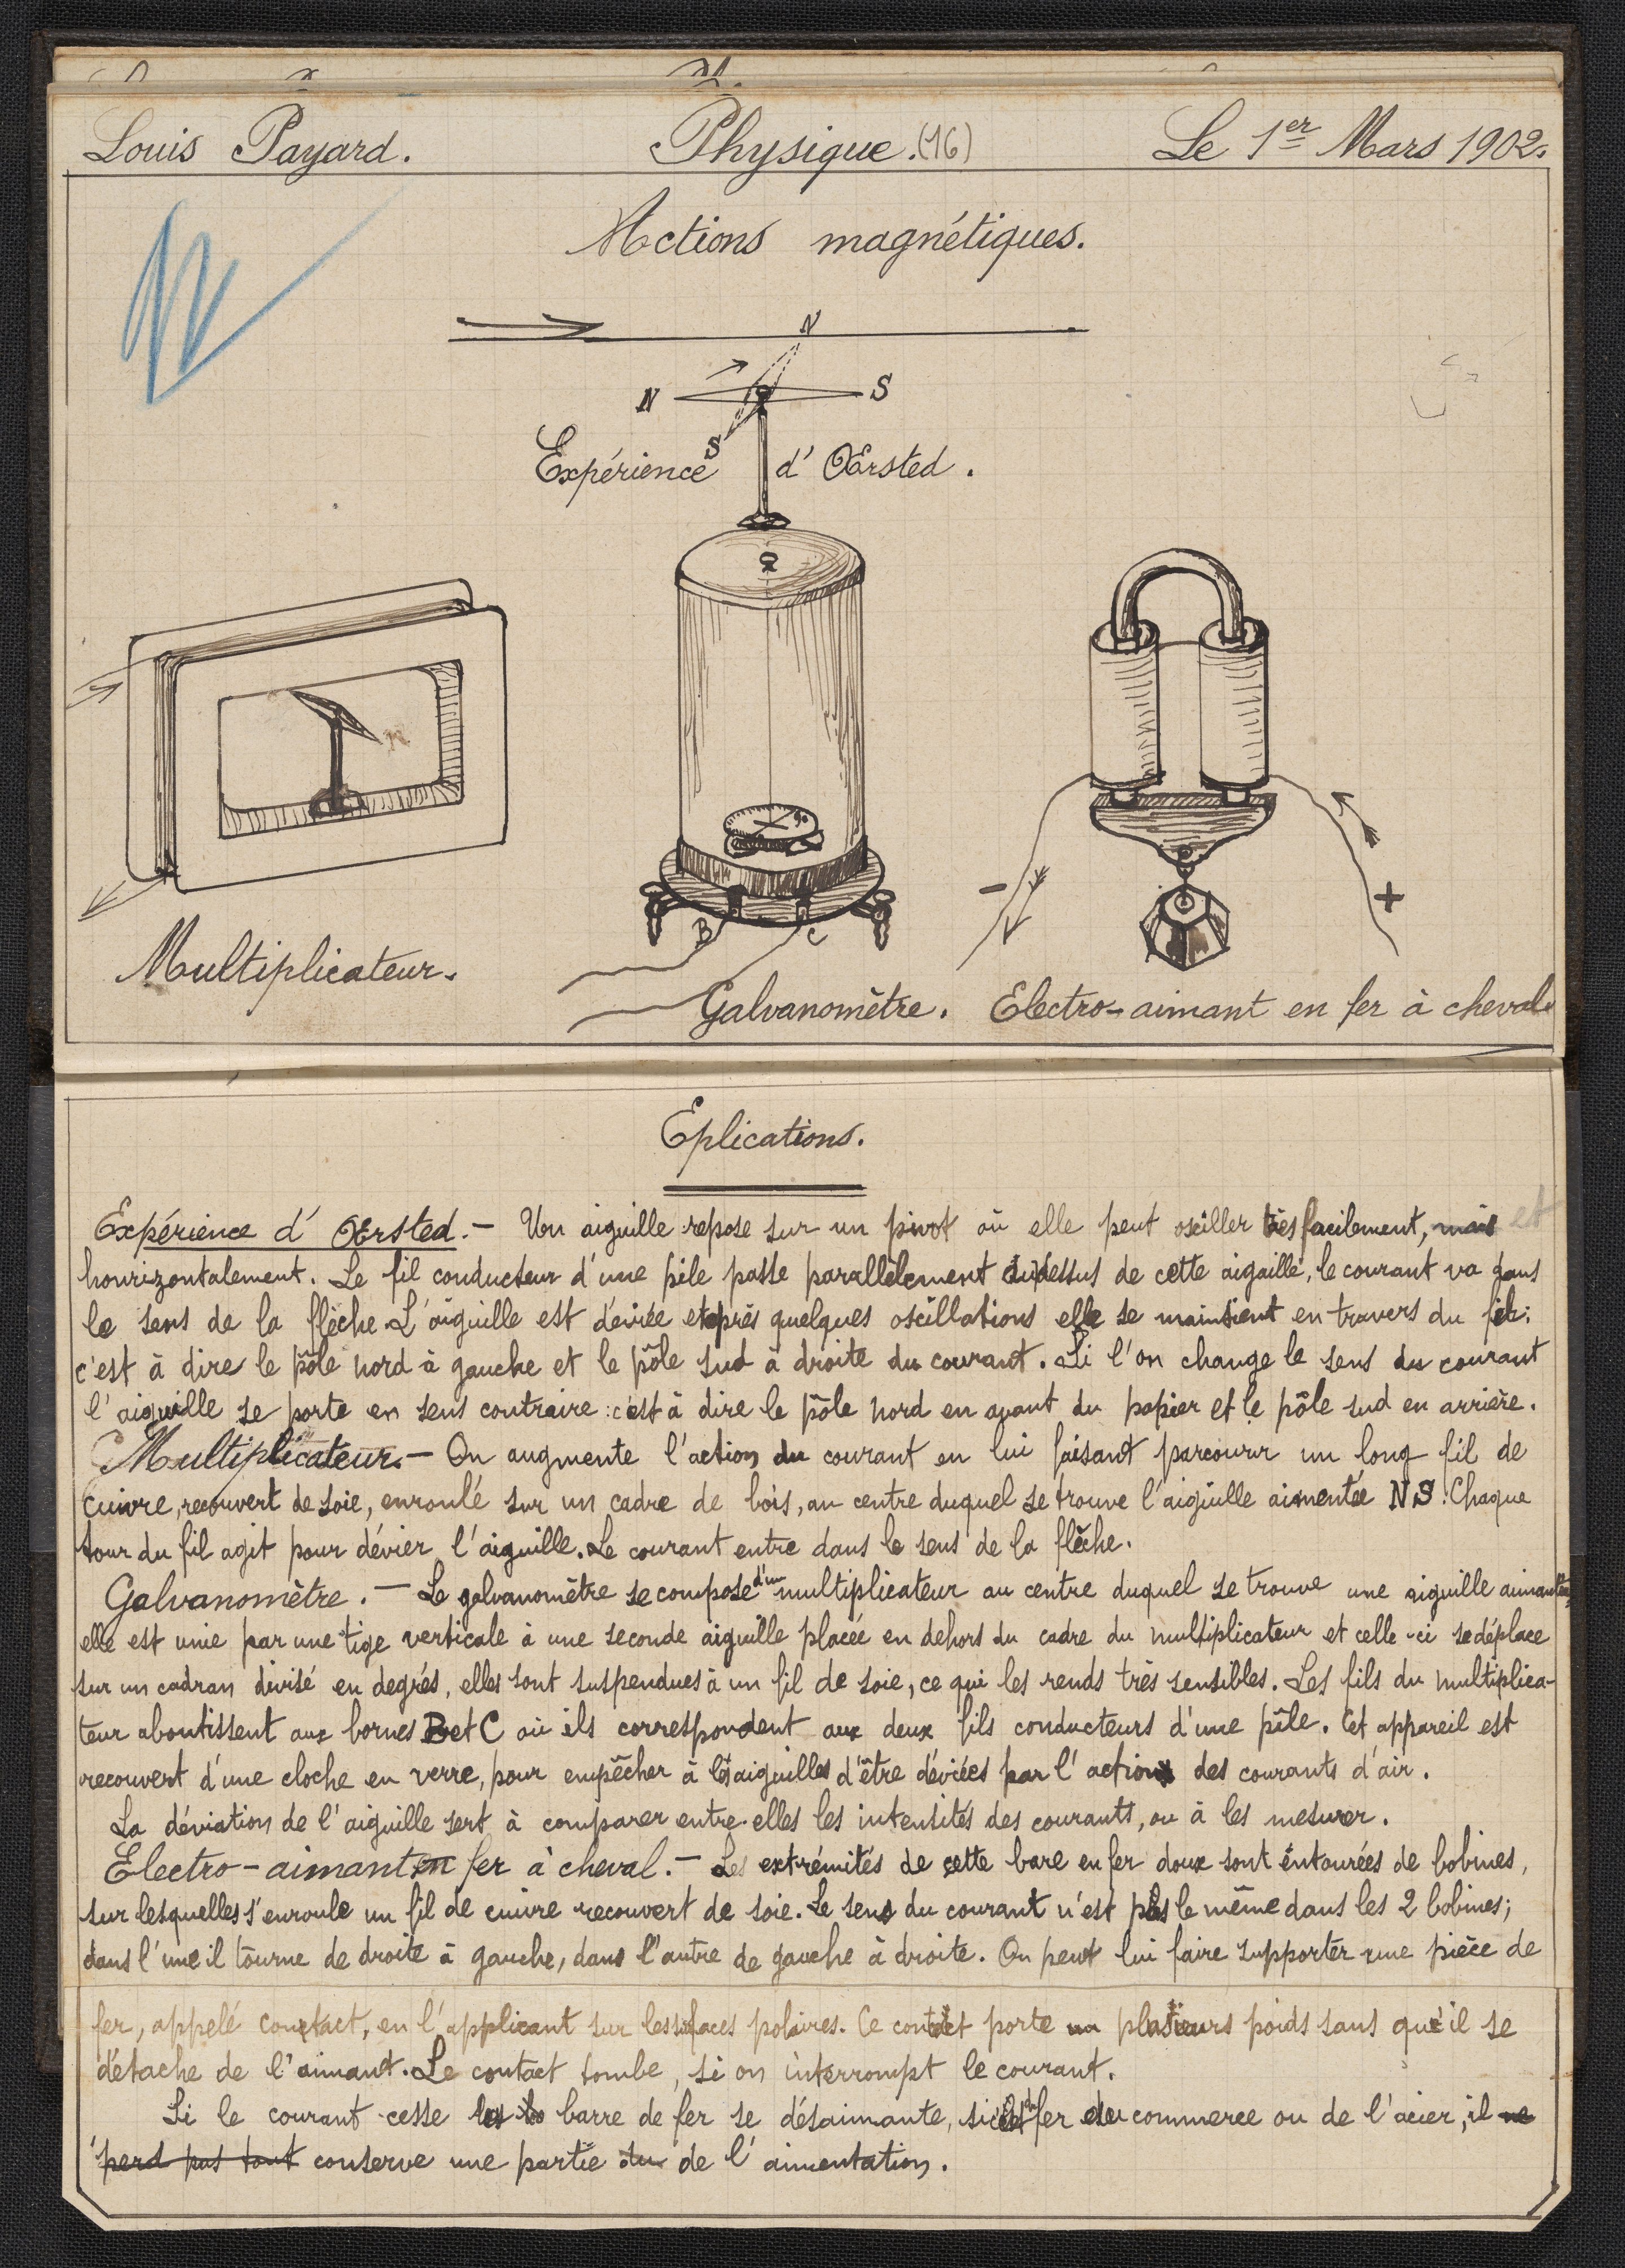 Louis Payard. Physique. (16) Le 1er Mars 1902.
Actions magnétiques.
N
N S
S
Expérience d' Œrsted.
N
B C
- +
Multiplicateur.
Galvanomètre. Electro-aimant en fer à cheval.
Eplications.
Expérience d' Œrsted. — Un aiguille repose sur un pivot où elle peut osciller très facilement, mais et
hourizontalement. Le fil conducteur d'une pile passe parallèlement au dessus de cette aiguille, le courant va dans
le sens de la flèche. L'aiguille est déviée et après quelques oscillations elle se maintient en travers du fil:
c'est à dire le pôle nord à gauche et le pôle sud à droite du courant. Si l'on change le sens du courant
l'aiguille se porte en sens contraire: c'est à dire le pôle nord en avant du papier et le pôle sud en arrière.
Multiplicateur. — On augmente l'action du courant en lui faisant parcourir un long fil de
cuivre, recouvert de soie, enroulé sur un cadre de bois, au centre duquel se trouve l'aiguille aimentée NS. Chaque
tour du fil agit pour dévier l'aiguille. Le courant entre dans le sens de la flèche.
Galvanomètre. — Le galvanomètre se compose d'un multiplicateur au centre duquel se trouve une aiguille aimantée,
elle est unie par une tige verticale à une seconde aiguille placée en dehors du cadre du multiplicateur et celle-ci se déplace
sur un cadran divisé en degrés, elles sont suspendues à un fil de soie, ce qui les rends très sensibles. Les fils du multiplica-
teur aboutissent aux bornes B et C où ils correspondent aux deux fils conducteurs d'une pile. Cet appareil est
recouvert d'une cloche en verre, pour empêcher à les aiguilles d'être déviées par l'action des courants d'air.
La déviation de l'aiguille sert à comparer entre elles les intensités des courants, ou à les mesurer.
Electro-aimant en fer à cheval. — Les extrémités de cette bare en fer doux sont entourées de bobines,
sur lesquelles s'enroule un fil de cuivre recouvert de soie. Le sens du courant n'est pas le même dans les 2 bobines;
dans l'une il tourne de droite à gauche, dans l'autre de gauche à droite. On peut lui faire supporter une pièce de
fer, appelé contact, en l'applicant sur les surfaces polaires. Ce contact porte un plusieurs poids sans qu'il se
détache de l'aimant. Le contact tombe, si on interrompt le courant.
Si le courant cesse la barre de fer se désaimante, si c'est du fer du commerce ou de l'acier, il ne
perd pas tout conserve une partie du de l'aimentation.